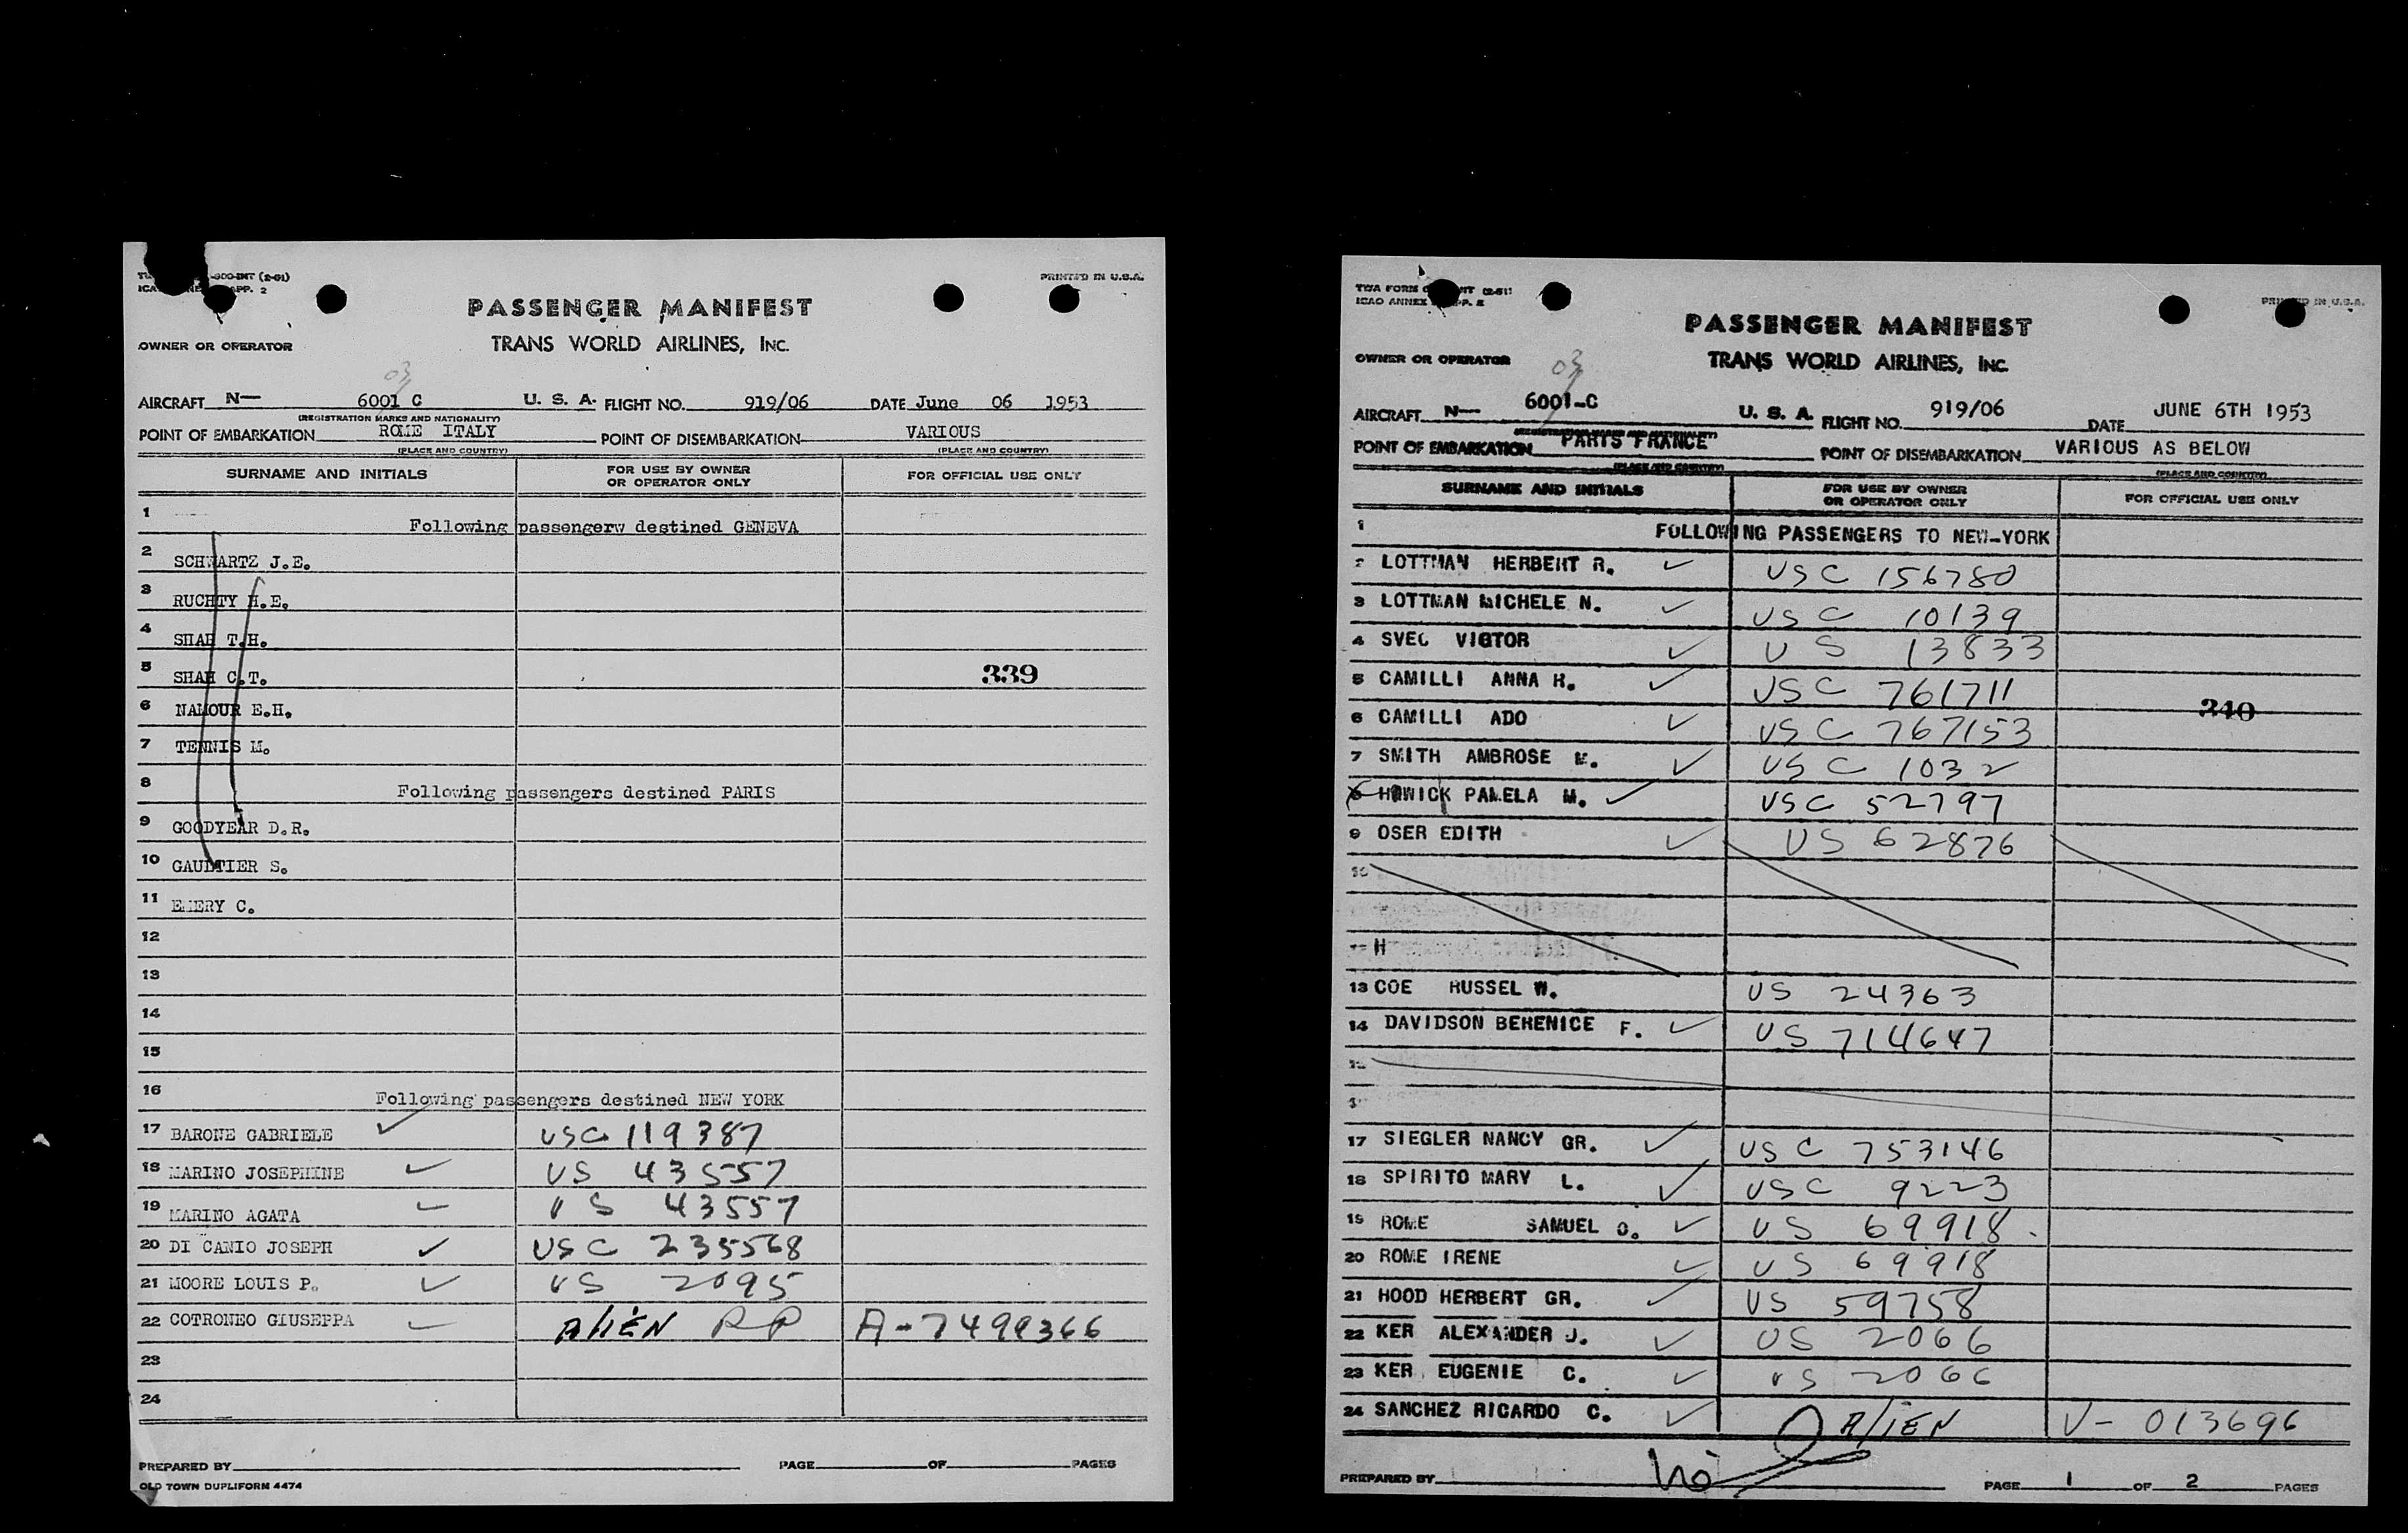 -300-INT (2-51)
PRINTED IN U.S.A.
APP. 2
PASSENGER MANIFEST
OWNER OR OPERATOR
TRANS WORLD AIRLINES, INC.
03
AIRCRAFT N— 6001 C U. S. A. FLIGHT NO. 919/06 DATE June 06 1953
(REGISTRATION MARKS AND NATIONALITY)
POINT OF EMBARKATION ROME ITALY POINT OF DISEMBARKATION VARIOUS
(PLACE AND COUNTRY) (PLACE AND COUNTRY)
SURNAME AND INITIALS FOR USE BY OWNER OR OPERATOR ONLY FOR OFFICIAL USE ONLY
1 Following passengerw destined GENEVA
2 SCHWARTZ J.E.
3 RUCHTY H.E.
4 SHAH T.H.
5 SHAH C.T. 339
6 NAMOUR E.H.
7 TENNIS M.
8 Following passengers destined PARIS
9 GOODYEAR D.R.
10 GAULTIER S.
11 EMERY C.
12
13
14
15
16 Following passengers destined NEW YORK
17 BARONE GABRIELE ✓ USC 119387
18 MARINO JOSEPHINE ✓ US 43557
19 MARINO AGATA ✓ US 43557
20 DI CANIO JOSEPH ✓ USC 235568
21 MOORE LOUIS P. ✓ US 2095
22 COTRONEO GIUSEPPA ✓ ALIEN RP A-7499366
23
24
PREPARED BY PAGE OF PAGES
OLD TOWN DUPLIFORM 4474
TWA FORM (2-51)
PRINTED IN U.S.A.
ICAO ANNEX
PASSENGER MANIFEST
OWNER OR OPERATOR
TRANS WORLD AIRLINES, INC.
03
AIRCRAFT N— 6001-C U. S. A. FLIGHT NO. 919/06 DATE JUNE 6TH 1953
(REGISTRATION MARKS AND NATIONALITY)
POINT OF EMBARKATION PARIS FRANCE POINT OF DISEMBARKATION VARIOUS AS BELOW
(PLACE AND COUNTRY) (PLACE AND COUNTRY)
SURNAME AND INITIALS FOR USE BY OWNER OR OPERATOR ONLY FOR OFFICIAL USE ONLY
1 FOLLOWING PASSENGERS TO NEW-YORK
2 LOTTMAN HERBERT R. ✓ USC 156780
3 LOTTMAN MICHELE N. ✓ USC 10139
4 SVEC VICTOR ✓ US 13833
5 CAMILLI ANNA H. ✓ USC 761711
6 CAMILLI ADO ✓ USC 767153 340
7 SMITH AMBROSE M. ✓ USC 1032
8 HOWICK PAMELA M. ✓ USC 52797
9 OSER EDITH ✓ US 62876
10
H
13 COE RUSSEL W. US 24363
14 DAVIDSON BERENICE F. ✓ US 714647
17 SIEGLER NANCY GR. ✓ USC 753146
18 SPIRITO MARY L. ✓ USC 9223
19 ROME SAMUEL O. ✓ US 69918
20 ROME IRENE ✓ US 69918
21 HOOD HERBERT GR. ✓ US 59758
22 KER ALEXANDER J. ✓ US 2066
23 KER EUGENIE C. ✓ US 2066
24 SANCHEZ RICARDO C. ✓ ALIEN V-013696
PREPARED BY PAGE 1 OF 2 PAGES